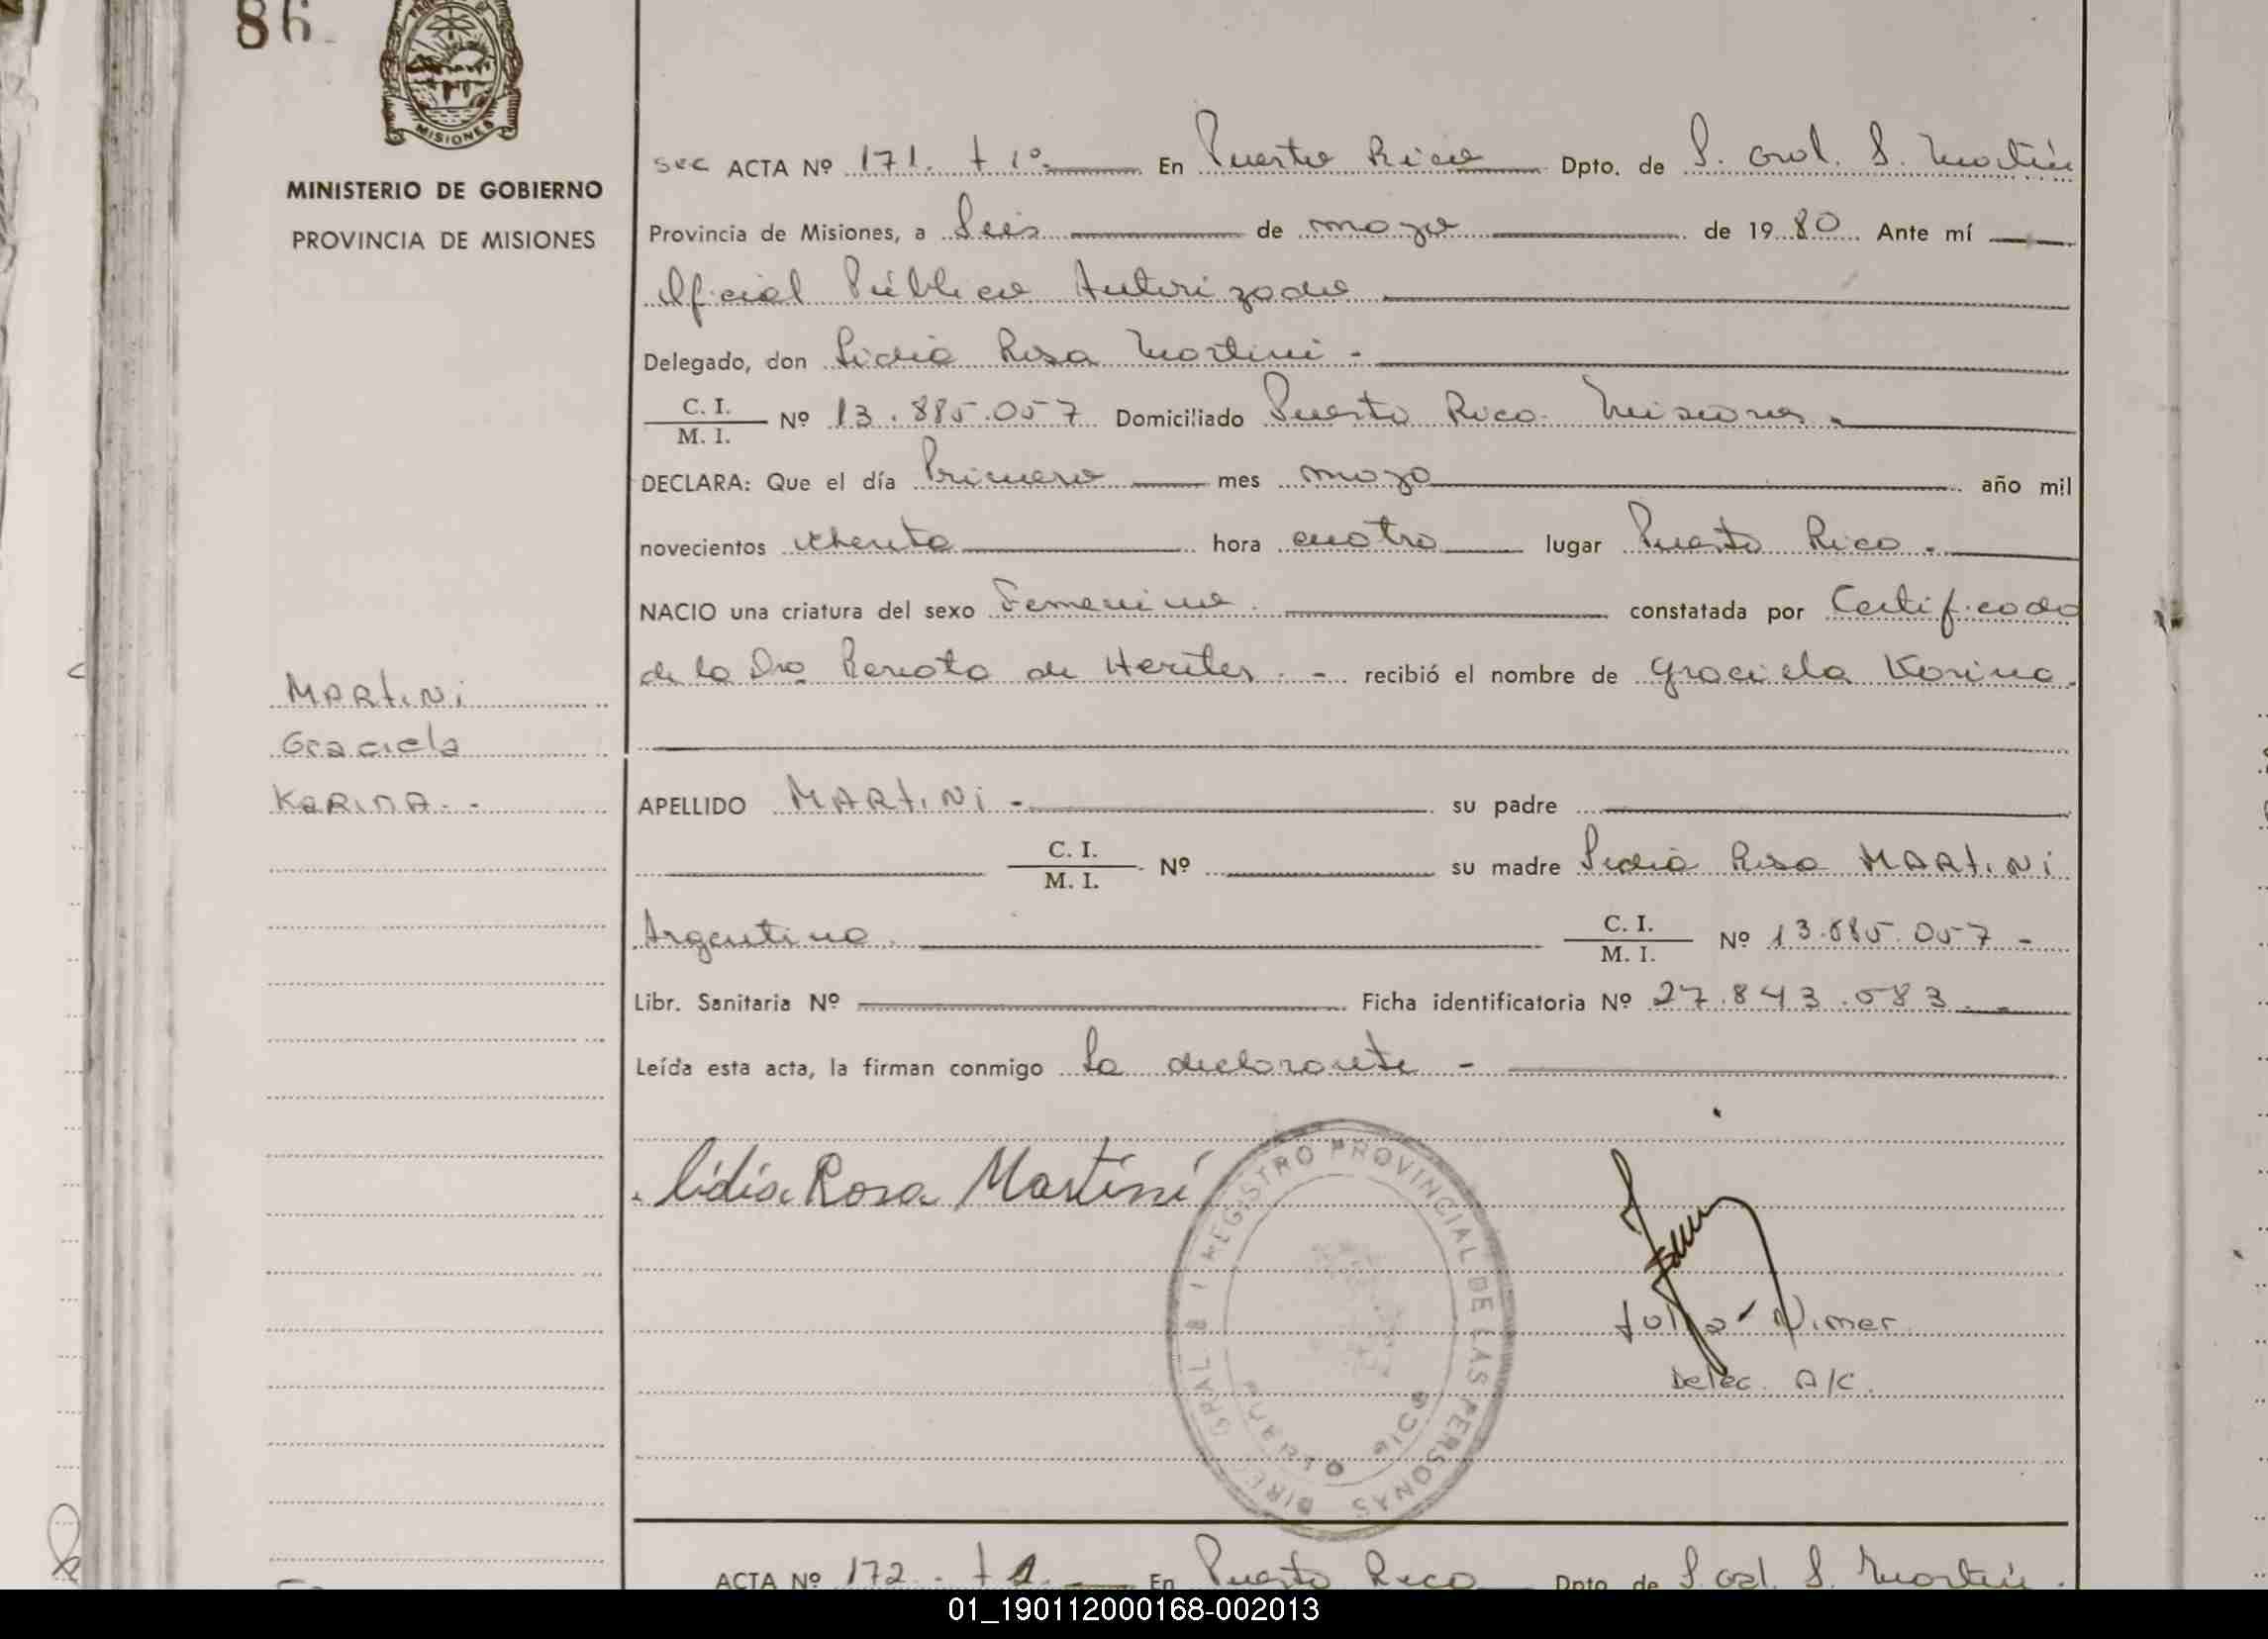 86
MISIONES
MINISTERIO DE GOBIERNO
PROVINCIA DE MISIONES
MARtiNi
Graciela
KaRinA. -
sec ACTA Nº 171. t 1º. En Puerto Rico Dpto. de L. Gral. S. Martín
Provincia de Misiones, a Seis de mayo de 1980. Ante mí
Oficial Público Autorizado
Delegado, don Lidia Rosa Martini -
C. I. / M. I. Nº 13.885.057 Domiciliado Puerto Rico. Misiones.
DECLARA: Que el día Primero mes mayo año mil
novecientos ochenta hora cuatro lugar Puerto Rico.
NACIO una criatura del sexo Femenino. constatada por Certificado
de la Dra. Renata de Heriter. - recibió el nombre de Graciela Karina.
APELLIDO MARtiNi - su padre
C. I. / M. I. Nº su madre Lidia Rosa MARtiNi
Argentina. C. I. / M. I. Nº 13.885.057 -
Libr. Sanitaria Nº Ficha identificatoria Nº 27.843.583. -
Leída esta acta, la firman conmigo La declarante -
Lidia Rosa Martini
REGISTRO PROVINCIAL DE LAS PERSONAS
DIREC GRAL
Julia Nimer
Deleg. A/C.
ACTA Nº 172. t 1. En Puerto Rico Dpto. de L. Gral. S. Martín.
01_190112000168-002013